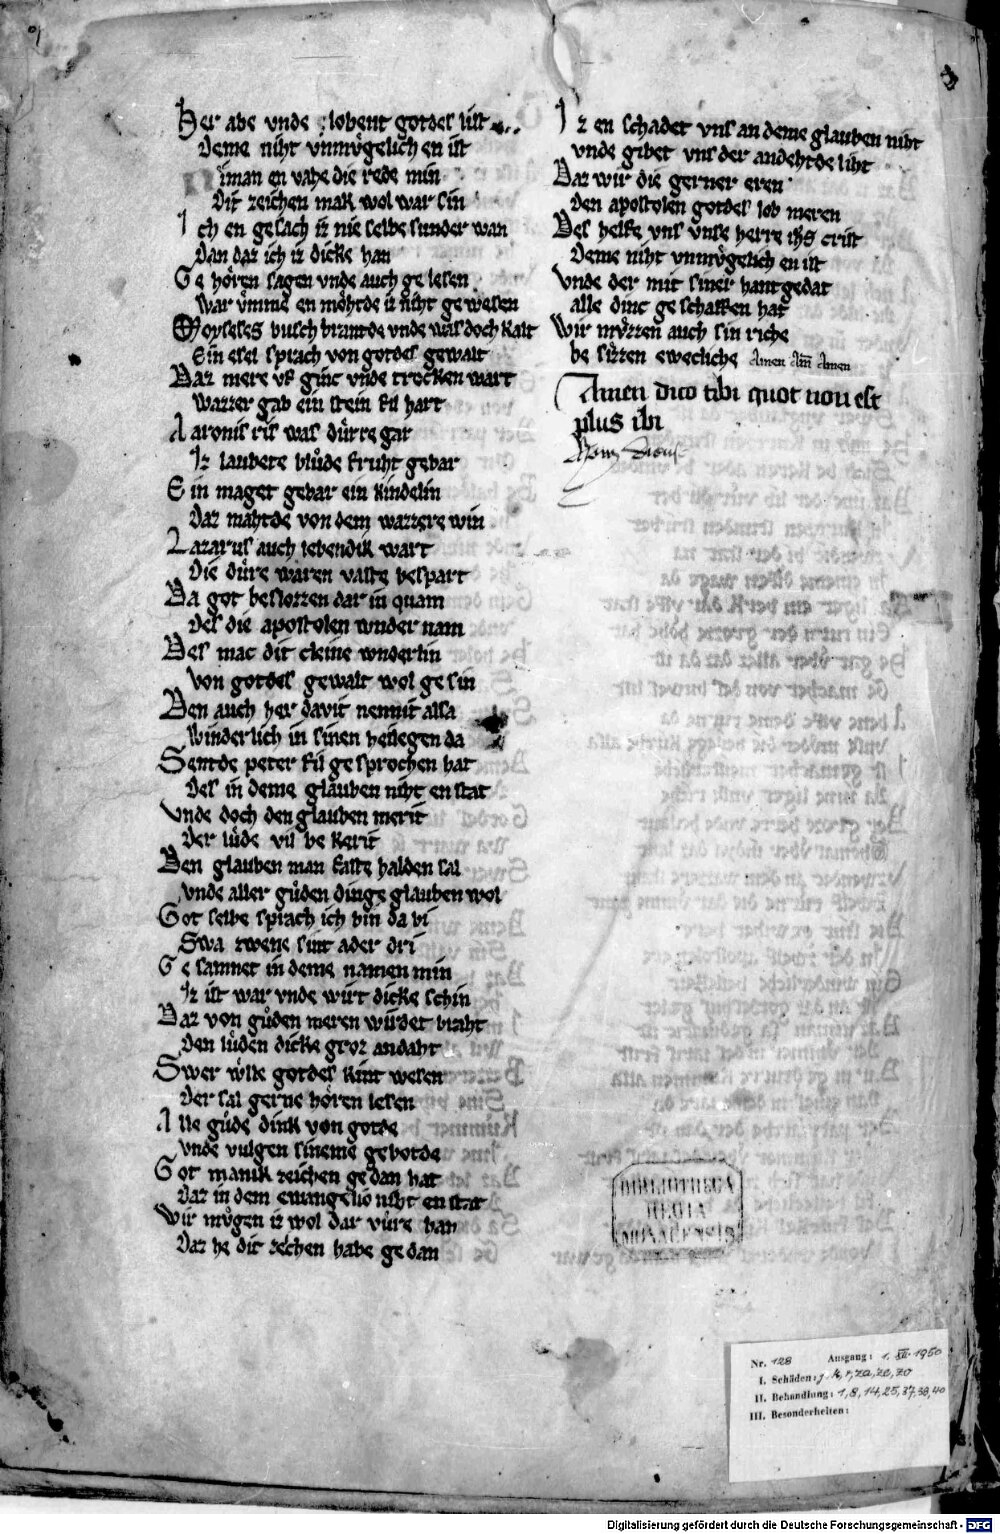 Her abe vnde lobent gotdes list
Deme niht vnmvͤgelich en ist
iman en vahe die rede min
Dit zeichen mak wol war sin
Ich en gesach iz nie selbe sunder wan
Dan daz ich iz dicke han
Ge hoͤren sagen vnde auch ge lesen
War vͤmme en moͤhtde iz niht ge wesen
Moyseses busch brantde vnde was doch kalt
Ein esel sprach von gotdes gewalt
Daz mere vf ginc vnde trocken wart
Wazzer gab ein stein fil hart
Aaronis ris was duͤrre gar
Iz laubete bluͦde fruht gebar
Ein maget gebar ein kindelin
Daz mahtde von dem wazzere win
Lazarus auch lebendik wart
Die duͤre waren vaste bespart
Da got beslozzen dar in quam
Des die apostolen wnder nam
Des mac dit cleine wnderlin
Von gotdes gewalt wol ge sin
Den auch her davit nennit alsa
Winderlich in sinen heilegen da
Sentde peter fil ge sprochen hat
Des in deme glauben niht en stat
Vnde doch den glauben merit
Der luͤde vil be kerit
Den glauben man faste halden sal
vnde aller guͤden dinge glauben wol
Got selbe sprach ich bin da bi
Swa zwene sint ader dri
Ge samnet in deme namen min
Iz ist war vnde wirt dicke schin
Daz von guͤden meren wirdet braht
Den luͤden dicke groz andaht
Swer woͤlle gotdes kint wesen
Der sal gerne hoͤren lesen
Alle guͤde dink von gotde
vnde vulgen sineme gebotde
Got manik zeichen ge dan hat
Daz in dem ewangelio niht en stat
Wir muͤgen iz wol dar vuͤre han
Daz he dit zechen habe ge dan
Iz en schadet vns an deme glauben niht
vnde gibet vns der andehtde liht
Daz wir die gerner eren
den apostolen gotdes lob meren
Des helfe vns vnse herre ihs crist
Deme niht vnmvͤgelich en ist
Vnde der mit siner hantgedat
alle dinc ge schaffen hat
Wir mvͤzzen auch sin riche
be sizzen ewecliche Amen Am Amen
Amen dico tibi quot non est
plus ibi
BIBLIOTHECA
REGIA
MONACENSIS
Nr. 128 Ausgang: 1. XII. 1950
I. Schäden: j, k, r, za, ze, zo
II. Behandlung: 1, 8, 14, 25, 37, 38, 40
III. Besonderheiten:
Digitalisierung gefördert durch die Deutsche Forschungsgemeinschaft - DFG